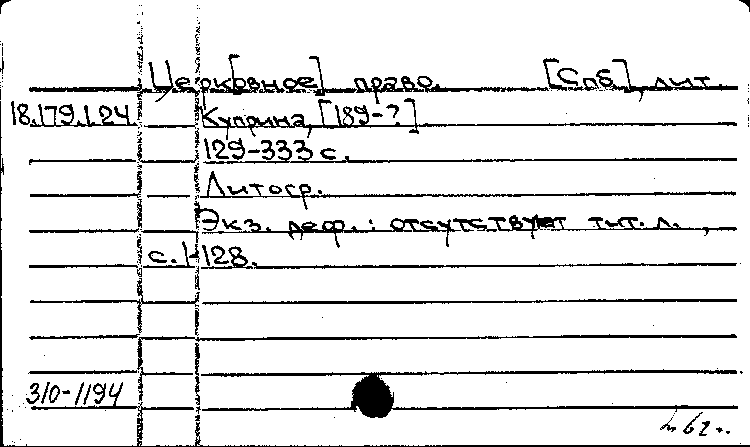 Церк[овное] право. [Спб], лит.
18.179.1.24. Куприна, [189-?]
129-333 с.
Литогр.
Экз. деф.: отсутствуют тит. л.,
с. 1-128.
310-1194
62 г.